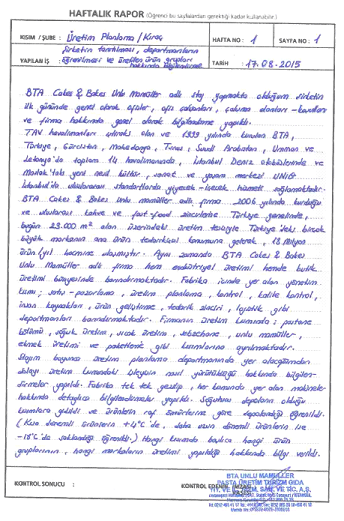 HAFTALIK RAPOR (Öğrenci bu sayfalardan gerektiği kadar kullanabilir.)
KISIM / ŞUBE : Üretim Planlama / Kıraç
HAFTA NO : 1
SAYFA NO : 1
Şirketin tanıtılması, departmanların
YAPILAN İŞ : öğrenilmesi ve üretilen ürün grupları
hakkında bilgilendirme
TARİH : 17.08.2015
BTA Cakes & Bakes Unlu Mamüller adlı staj yapmakta olduğum şirketin
ilk gününde genel olarak ofisler, ofis çalışanları, çalışma alanları
ve firma hakkında genel olarak bilgilendirme yapıldı.
TAV havalimanları iştiraki olan ve 1999 yılında kurulan BTA,
Türkiye, Gürcistan, Makedonya, Tunus, Suudi Arabistan, Umman ve
Letonya'da toplam 14 havalimanında, İstanbul Deniz otobüslerinde ve
yeni nesil kültür, sanat ve yaşam merkezi UNIQ
İstanbul'da uluslararası standartlarda yiyecek-içecek hizmeti sağlamaktadır.
BTA Cakes & Bakes Unlu Mamüller adlı firma 2006 yılında kurulduğu
ve uluslararası kahve ve fast-food zincirlerine Türkiye genelinde,
bugün 23.000 m² alan üzerindeki üretim tesisiyle Türkiye'deki birçok
büyük markanın ana ürün tedarikçisi konumuna gelerek, 18 Milyon
ürün/yıl hacmine ulaşmıştır. Aynı zamanda BTA Cakes & Bakes
Unlu Mamüller adlı firma hem endüstriyel üretimi hemde butik
üretimi bünyesinde barındırmaktadır. Fabrika içinde yer alan yönetim
kısmı; satış-pazarlama, üretim planlama, kontrol, kalite kontrol,
insan kaynakları, ürün geliştirme, tedarik zinciri, lojistik gibi
departmanları barındırmaktadır. Firmanın üretim kısmında; pastane
bölümü, soğuk üretim, sıcak üretim, sebzehane, unlu mamüller,
ekmek üretimi ve paketleme gibi kısımlarına ayrılmaktadır.
Stajım boyunca üretim planlama departmanında yer alacağımdan
dolayı üretim kısmındaki işleyişin nasıl yürütüldüğü hakkında bilgilen-
dirmeler yapıldı. Fabrika tek tek gezilip, her kısımda yer alan makineler
hakkında detaylıca bilgilendirmeler yapıldı. Soğutucu depoların olduğu
kısımlara gidildi ve ürünlerin raf ömürlerine göre depolandığı öğrenildi.
(Kısa dönemli ürünlerin +4°C'de, daha uzun dönemli ürünlerin ise
-18°C'de saklandığı öğrenildi.) Hangi kısımda başlıca hangi ürün
gruplarının, hangi markaların üretimi yapıldığı hakkında bilgi verildi.
KONTROL SONUCU :
KONTROL EDENİN İMZASI
BTA UNLU MAMÜLLER
PASTA ÜRETİM TURİZM GIDA